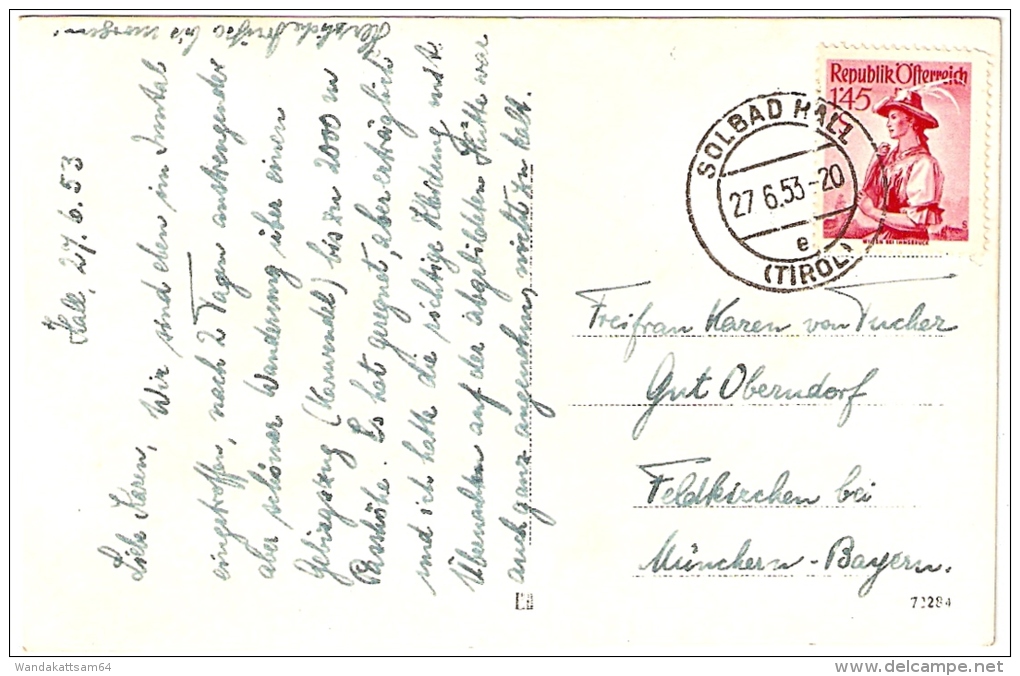 Hall, 27.6.53
Liebe Karen, Wir sind eben im Inntal
eingetroffen, nach 2 Tagen anstrengender
aber schöner Wanderung über einen
Gebirgszug (Karwendel) bis zu 2000 m
Passhöhe. Es hat geregnet, aber erträglich
und ich hatte die richtige Kleidung mit.
Übernachten auf der abgebildeten Hütte war
auch ganz angenehm, nicht zu kalt.
Herzliche Grüße bis morgen!
Republik Österreich
145
WILTEN BEI INNSBRUCK
SOLBAD HALL
27.6.53-20
e
(TIROL)
Freifrau Karen von Tucher
Gut Oberndorf
Feldkirchen bei
München-Bayern.
72284
Wandakattsam64
www.delcampe.net